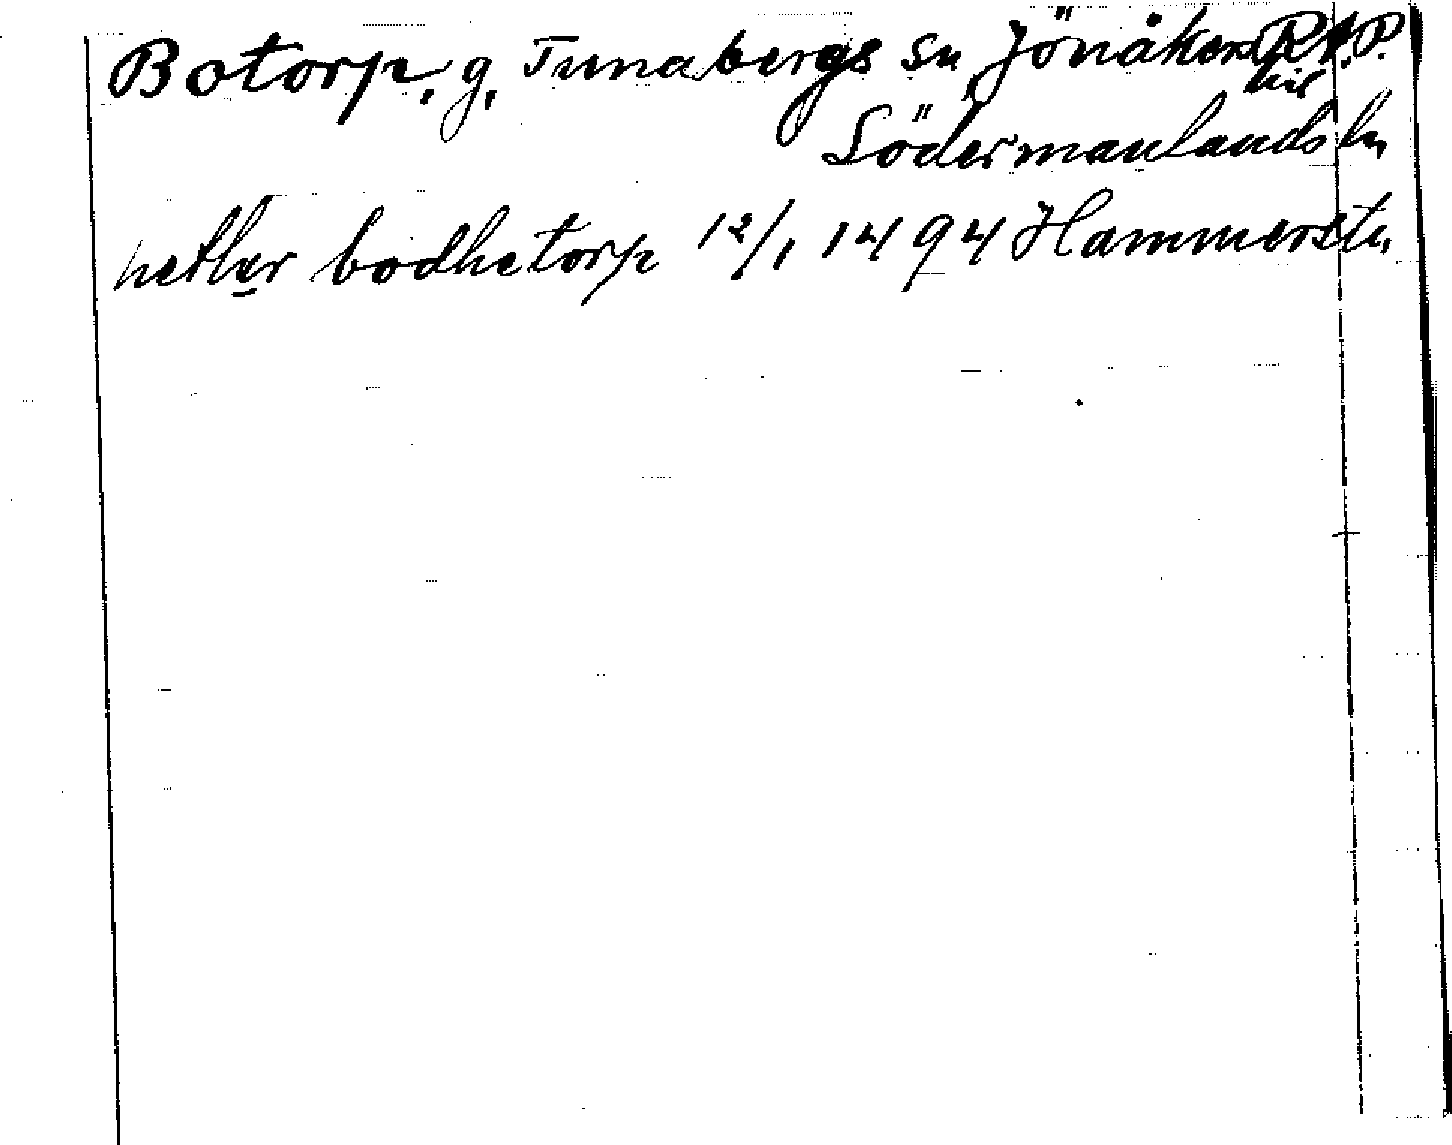 Botorp, g, Tunabergs sn Jönåkers
Södermanlands ln
nether bodhetorp 12/1 1494 Hammerst.